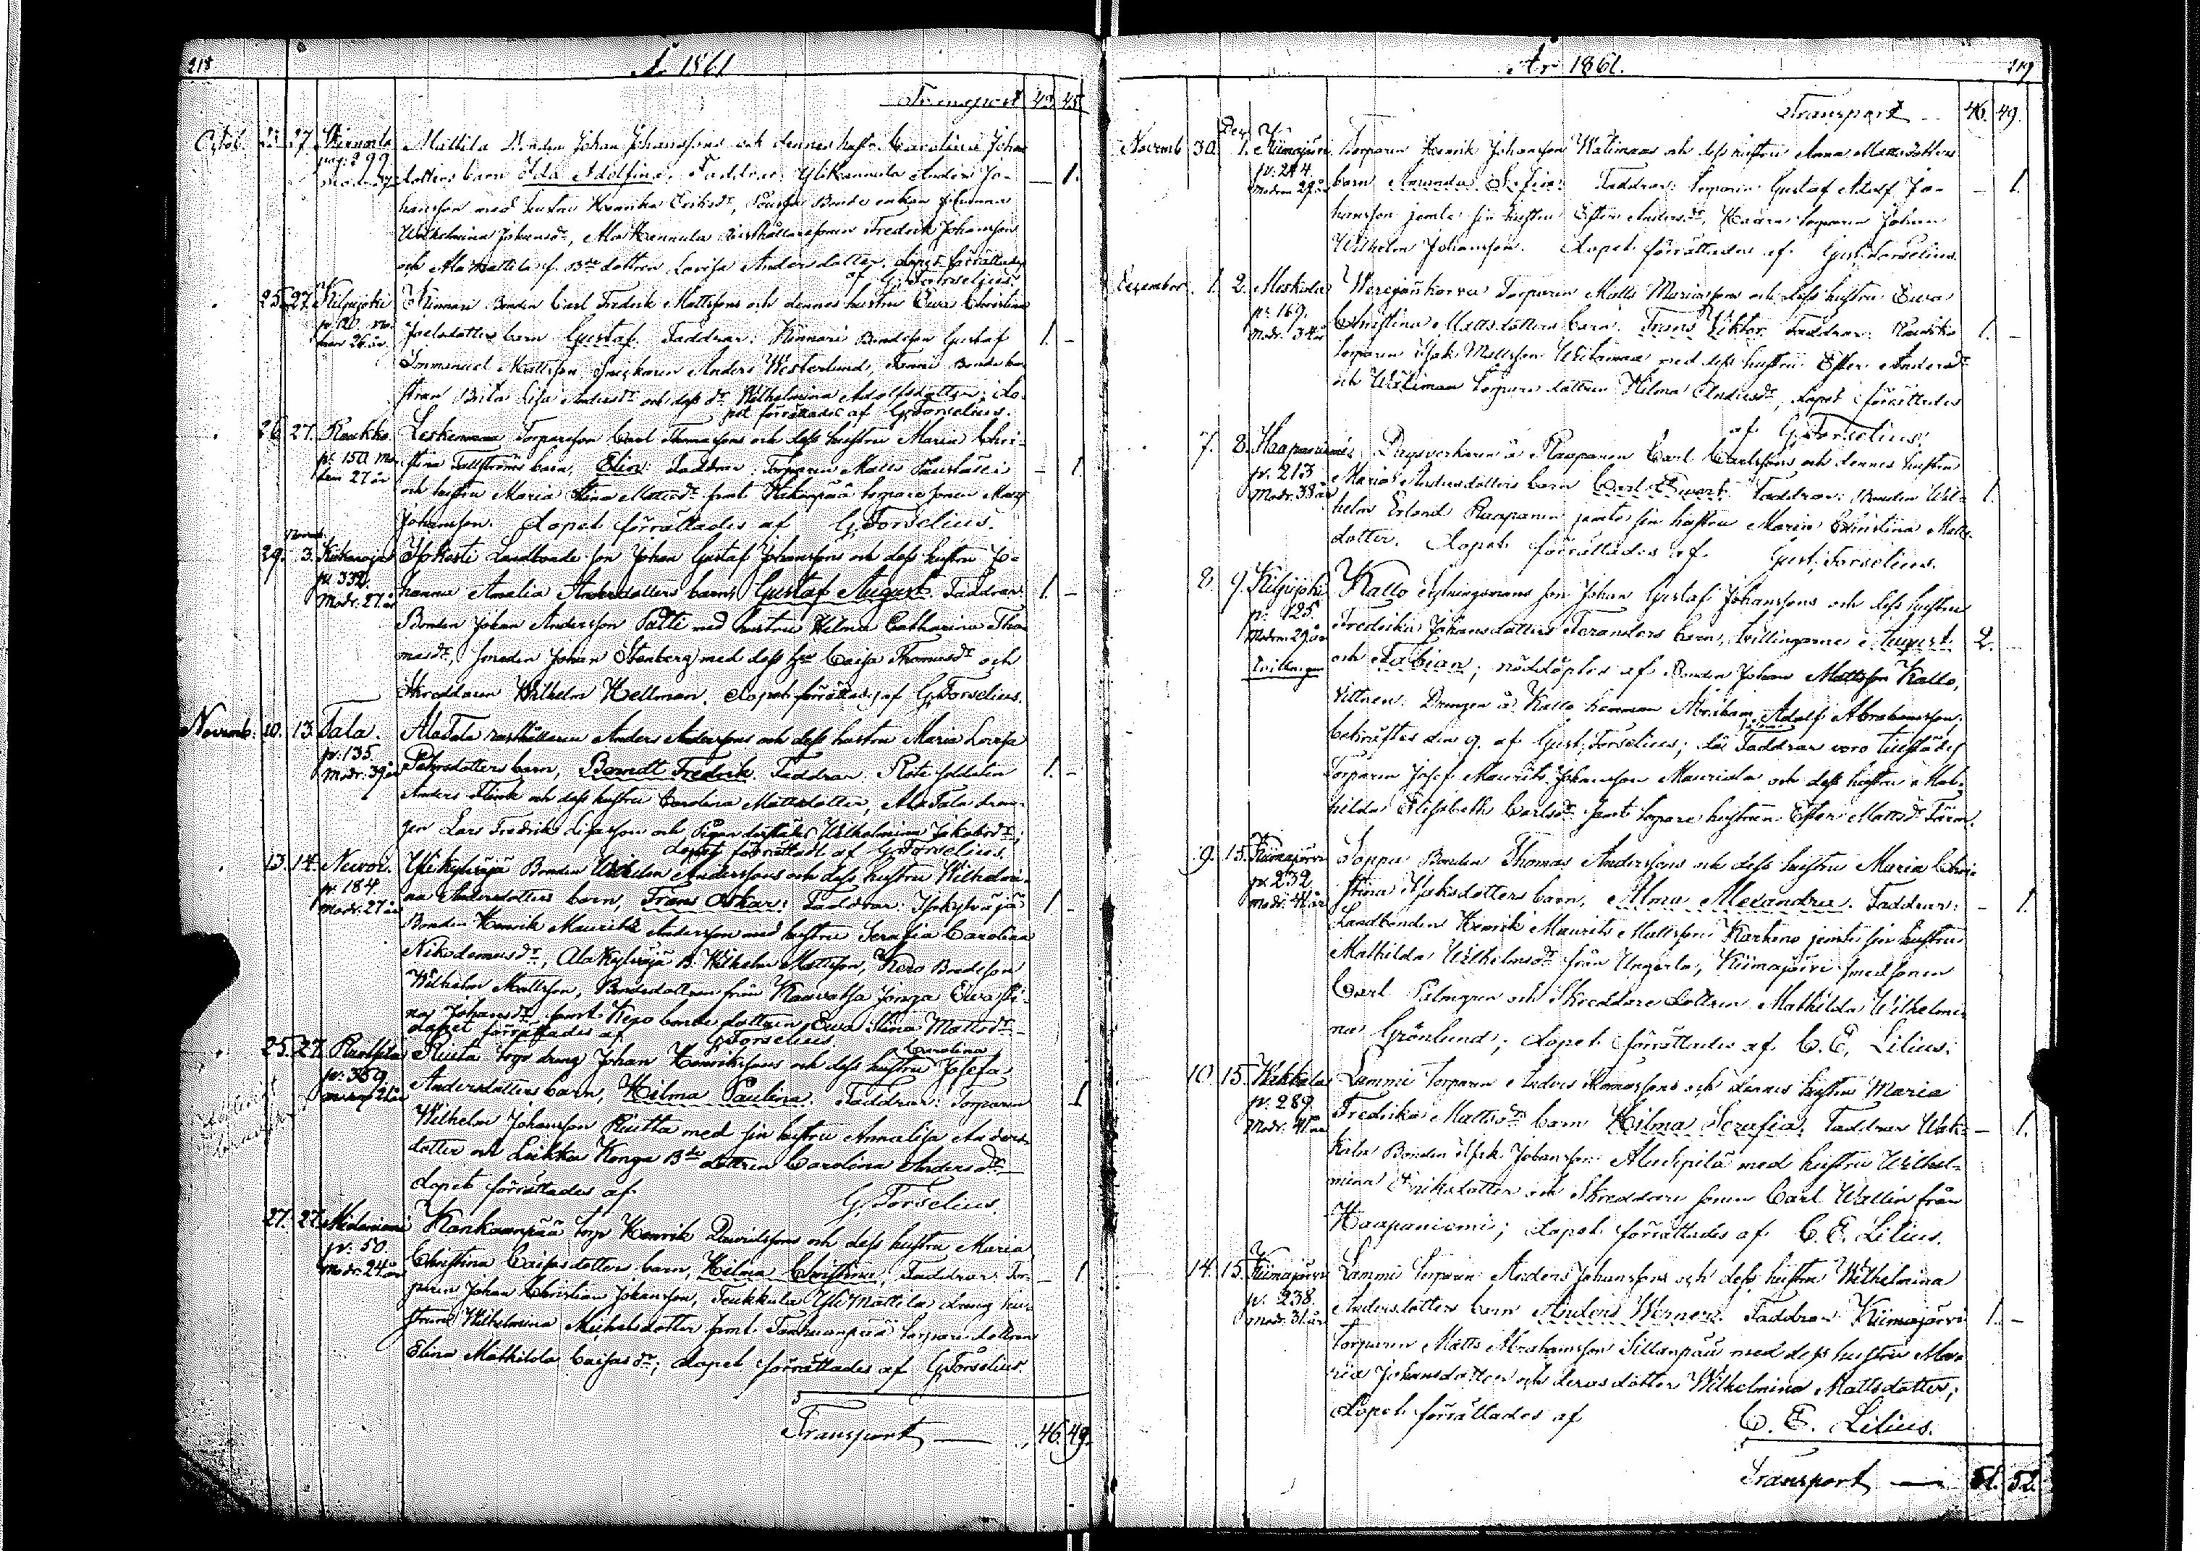 218
År 1861
Transport 42. 45.
Octob. 23. 27.
pag: 299
Mattila Bonden Johan Johanssons och dennes hustr. Carolina Johans
dotters barn Ida Adolfina. Faddrar: Anders Jo- — 1.
hansson med hustru Henrika Eriksdr, Bonde enkan
Wilhelmina Johansdr, Fredrik Johansson
och Ala Mattila Bde dottren Lovisa Andersdotter. dopet förrättades
af G. Forselius.
25. 27. Kilpijoki
p: 120. mo-
dren 26 år
Kinnari Bonden Carl Fredrik Mattssons och dennes hustru Eva Christina
Joelsdotters barn Gustaf. Faddrar: Kinnari Bondeson Gustaf 1. —
Emmanuel Mattsson Anders Westerlund, Bonde hu-
strun Brita Lisa Andersdr och dess dr Wilhelmina Adolfsdotter; do-
pet förrättades af G. Forselius.
26. 27. Raukko
p: 150 mo-
dren 27 år
Torpareson Carl Thomassons och dess hustru Maria Chri-
stina barn, Elin. Faddrar: Torparen Matts — 1
och hustru Maria Stina Mattsdr samt torpare sonen
Johansson. dopet förrättades af G. Forselius.
29. Novemb. 3.
p: 332.
Modr. 27 år
Landbonde son Johan Gustaf Johanssons och dess hustru Jo-
hanna Amalia Andersdotters barn, Gustaf August. Faddrar: 1. —
Bonden Johan Andersson med hustru Helena Catharina Tho-
masdr, smeden Johan Stenberg med dess hu Caisa Thomasdr och
Skreddaren Wilhelm Hellman. dopet förrättades af G. Forselius.
Novemb: 10. 13. Tala.
p: 135
Modr. 39 år
Ala Tala rusthållaren Anders Anderssons och dess hustru Maria Lovisa
barn, Berndt Fredrik. Faddrar: Rote soldaten 1. —
Anders Flink och dess hustru Carolina Mattsdotter, Ala Tala dren-
gen Lars Fredrik och Pigan Wilhelmina Jakobsdr;
dopet förrättades af G. Forselius.
13. 14.
p: 184.
Modr. 27 år
Bonden Wilhelm Anderssons och dess hustru Wilhelmi-
na Andersdotters barn, Frans Oskar. Faddrar: 1. —
Bonden Henrik Maurits Andersson med hustru Serafia Carolina
Nikodemusdr, B. Wilhelm Mattsson, Bondeson
Wilhelm Mattsson, Bondedottren från Eva Sti-
na Johansdr samt bonde dottren Eva Stina Mattsdr
dopet förrättades af G. Forselius
25. 27.
p: 369
torp. dreng Johan Henrikssons och dess hustru Josefa Carolina
Andersdotters barn, Hilma Paulina. Faddrar: Torparen 1
Wilhelm Johansson med sin hustru Annalisa Anders-
dotter och Bde dottren Carolina Andersdr
dopet förrättades af G. Forselius.
27. 27.
p: 50
Modr. 24 år
Kankaanpää torp. Henrik Davidssons och dess hustru Maria
Christina Caisasdotters barn, Hilma Christina. Faddrar: Tor- — 1
paren Johan Christian Johansson, Mattila dreng hu-
strun Wilhelmina Michelsdotter samt torpare dottren
Elina Mathilda Caisasdr; dopet förrättades af G. Forselius.
Transport — 46. 49.
År 1861.
219
Transport 46. 49.
Novemb 30. Dec. 1. Kiimajärvi
p: 244.
Modren 29 år
Torparen Henrik Johansson Wälimaas och dess hustru Anna Mattsdotters
barn Amanda Sofia. Faddrar: Torparen Gustaf Adolf Jo- — 1.
hansson jemte sin hustru Ester Andersdr, torparen Johan
Wilhelm Johansson. dopet förrättades af Gust. Forselius.
December 1. 2. Meskala
p: 169.
Modr. 34 år
Torparen Matts Mariassons och dess hustru Eva
Christina Mattsdotters barn Frans Viktor. Faddrar: 1. —
torparen Isak Mattsson med dess hustru Ester Andersdr
och Wälimaa torpare dottren Hilma Andersdr, dopet förrättades
af G. Forselius.
7. 8. Haapaniemi
p: 213
Modr. 38 år
Dagsverkaren å Raaparen Carl Carlssons och dennes hustru
Maria Andersdotters barn Carl Evert. Faddrar: Bonden Wil- 1.
helm Erland Raaparen jemte sin hustru Maria Christina Matts-
dotter. dopet förrättades af Gust: Forselius.
8. 9. Kilpijoki
p: 125.
Modren 29 år
Tvillingar
Kallo son Johan Gustaf Johanssons och dess hustru
Fredrika Johansdotters barn, tvillingarne August 2.
och Fabian; nöddöptes af Bonden Johan Mattsson Kallo,
vittnen: Drengen å Kallo hemman Abraham Adolf Abrahamsson;
bekräftes den 9. af Gust: Forselius; då Faddrar voro tillstädes
Torparen Josef Maurits Johansson och dess hustru Mat-
hilda Elisabeth Carlsdr samt torpare hustrun Ester Mattsdr
9. 15. Kiimajärvi
p: 232
Modr. 42 år
Soppa Bonden Thomas Anderssons och dess hustru Maria Chri-
stina Isaksdotters barn, Alma Alexandra. Faddrar: — 1.
Landbonden Henrik Maurits Mattsson jemte sin hustru
Mathilda Wilhelmsdr från Ungerla, Kiimajärvi smedsonen
Carl Palmgren och Skreddare dottren Mathilda Wilhelmi-
na Grönlund; dopet förrättades af C. E. Lilius.
10. 15. Wakkala
p: 289
Modr. 41 år
Lammi torparen Anders Thomassons och dennes hustru Maria
Fredrika Mattsdrs barn Hilma Serafia. Faddrar Wak- — 1.
kala Bonden Isak Johansson med hustru Wilhel-
mina Eriksdotter och Skreddare sonen Carl Wallin från
Haapaniemi; dopet förrättades af C. E. Lilius.
14. 15. Kiimajärvi
p: 238.
Modr. 31 år
Lammi torparen Anders Johanssons och dess hustru Wilhelmina
Andersdotters barn Anders Werner. Faddrar Kiimajärvi 1. —
torparen Matts Abrahamsson Sillanpää med dess hustru Ma-
ria Johansdotter och deras dotter Wilhelmina Mattsdotter;
dopet förrättades af C. E. Lilius.
Transport — 51. 52.